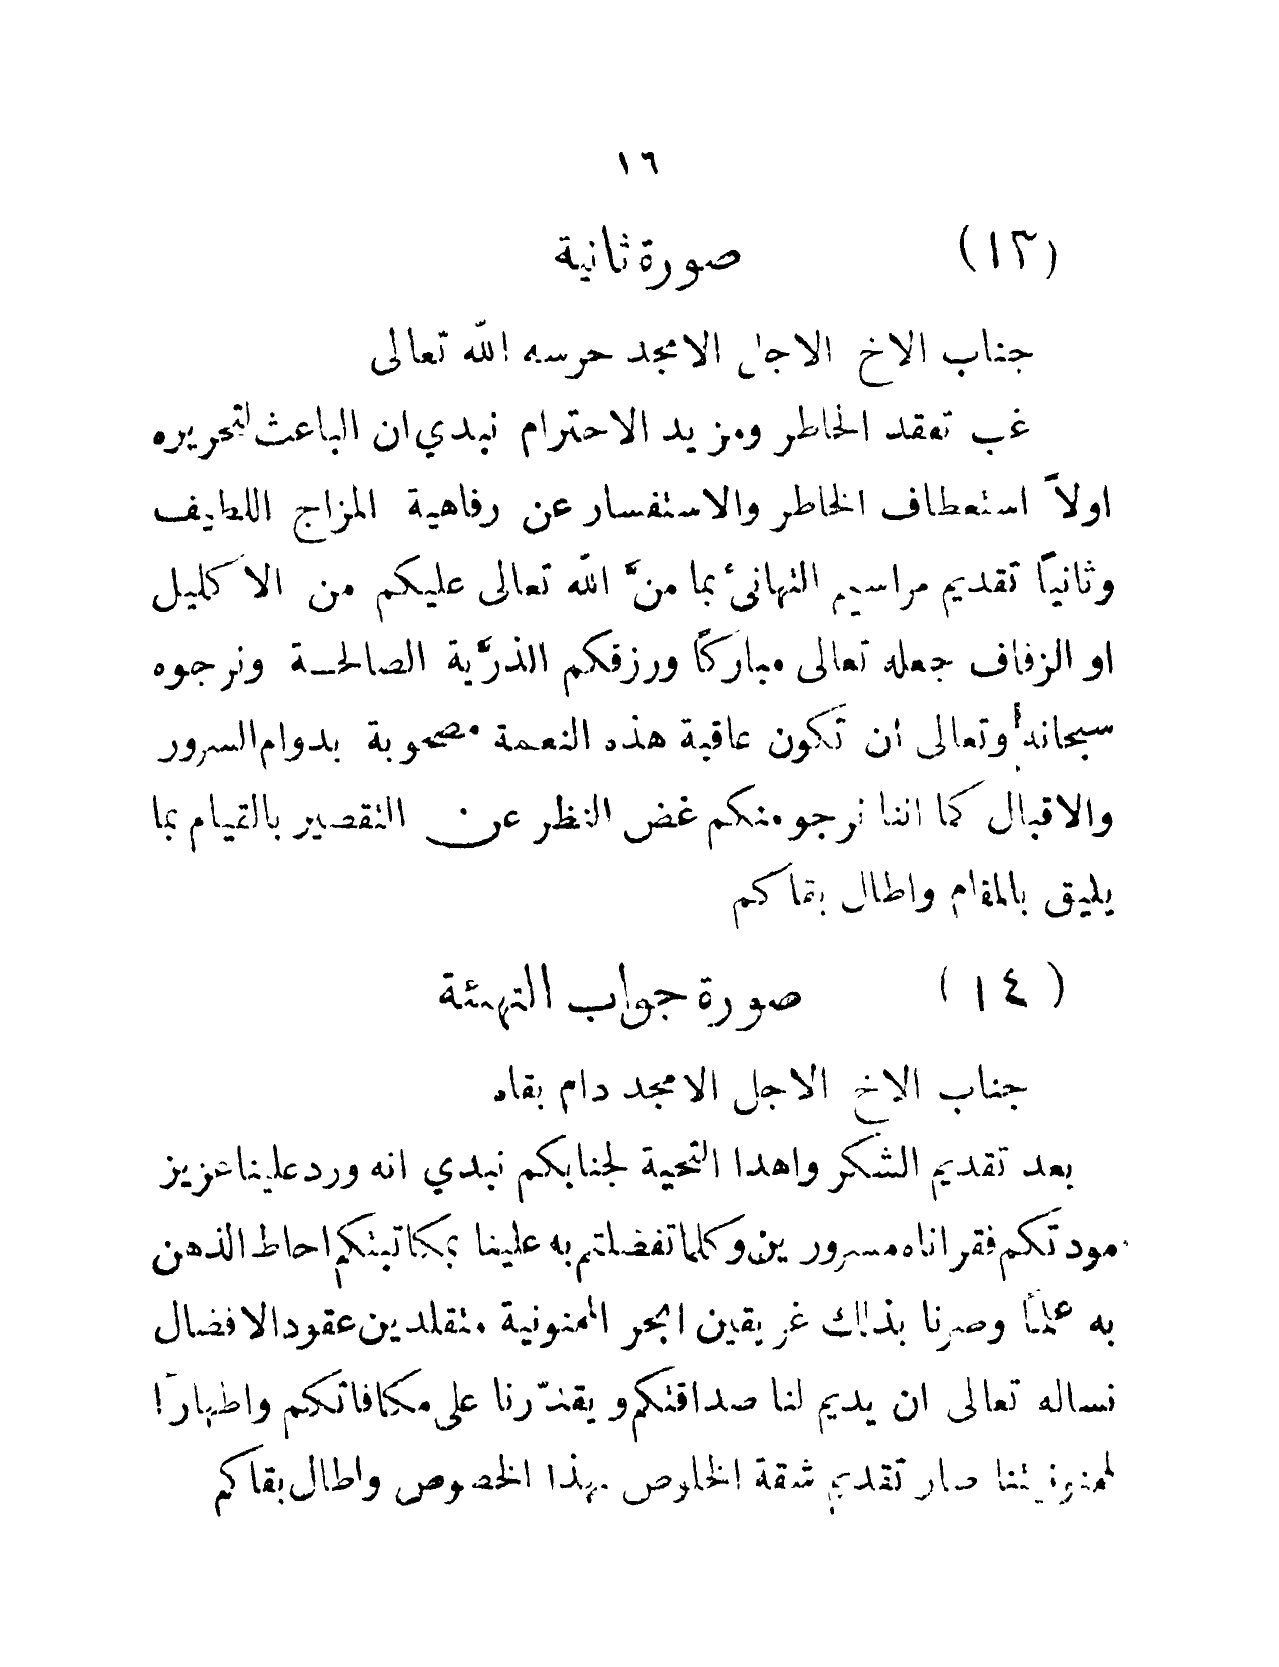 ١٦
(١٣) صورة ثانية
جناب الاخ الاجل الامجد حرسه الله تعالى
غب تفقد الخاطر ومزيد الاحترام نبدي ان الباعث لتحريره
اولاً استعطاف الخاطر والاستفسار عن رفاهية المزاج اللطيف
وثانياً تقديم مراسيم التهانئ بما منَّ الله تعالى عليكم من الاكليل
او الزفاف جعله تعالى مباركاً ورزقكم الذرَّية الصالحة ونرجوه
سبحانه وتعالى ان تكون عاقبة هذه النعمة مصحوبة بدوام السرور
والاقبال كما اننا نرجو منكم غض النظر عن التقصير بالقيام بما
يليق بالمقام واطال بقاكم
(١٤) صورة جواب التهنئة
جناب الاخ الاجل الامجد دام بقاه
بعد تقديم الشكر واهدا التحية لجنابكم نبدي انه ورد علينا عزيز
مودتكم فقراناه مسرورين وكلما تفضلتم به علينا بمكاتبتكم احاط الذهن
به علماً وصرنا بذلك غريقين ابحر الممنونية متقلدين عقود الافضال
نساله تعالى ان يديم لنا صداقتكم ويقدّرنا على مكافاتكم واظهاراً
لممنونيتنا صار تقديم شقة الخلوص بهذا الخصوص واطال بقاكم